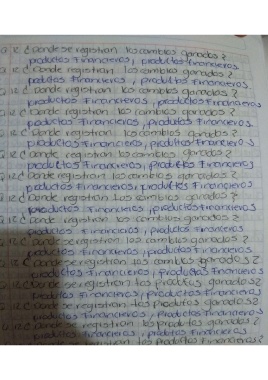 12 ¿Donde se registran los cambios ganados?
productos Financieros, productos financieros
12 ¿Donde registran los cambios ganados?
productos Financieros, productos Financieros
12 ¿Donde registran los cambios ganados?
productos Financieros, productos Financieros
12 ¿Donde registran los cambios ganados?
productos Financieros, productos Financieros
12 ¿Donde registran los cambios ganados?
productos Financieros, productos Financieros
12 ¿Donde registran los cambios ganados?
productos Financieros, productos Financieros
12 ¿Donde registran los cambios ganados?
productos Financieros, productos Financieros
12 ¿Donde registran los cambios ganados?
productos Financieros, productos Financieros
12 ¿Donde registran los cambios ganados?
productos Financieros, productos Financieros
12 ¿Donde se registran los cambios ganados?
productos Financieros, productos Financieros
12 ¿Donde se registran los cambios ganados?
productos Financieros, productos Financieros
12 ¿Donde se registran los productos ganados?
productos Financieros, productos Financieros
12 ¿Donde se registran los productos ganados?
productos Financieros, productos Financieros
12 ¿Donde se registran los productos ganados?
productos Financieros, productos Financieros
registran los productos Financieros?